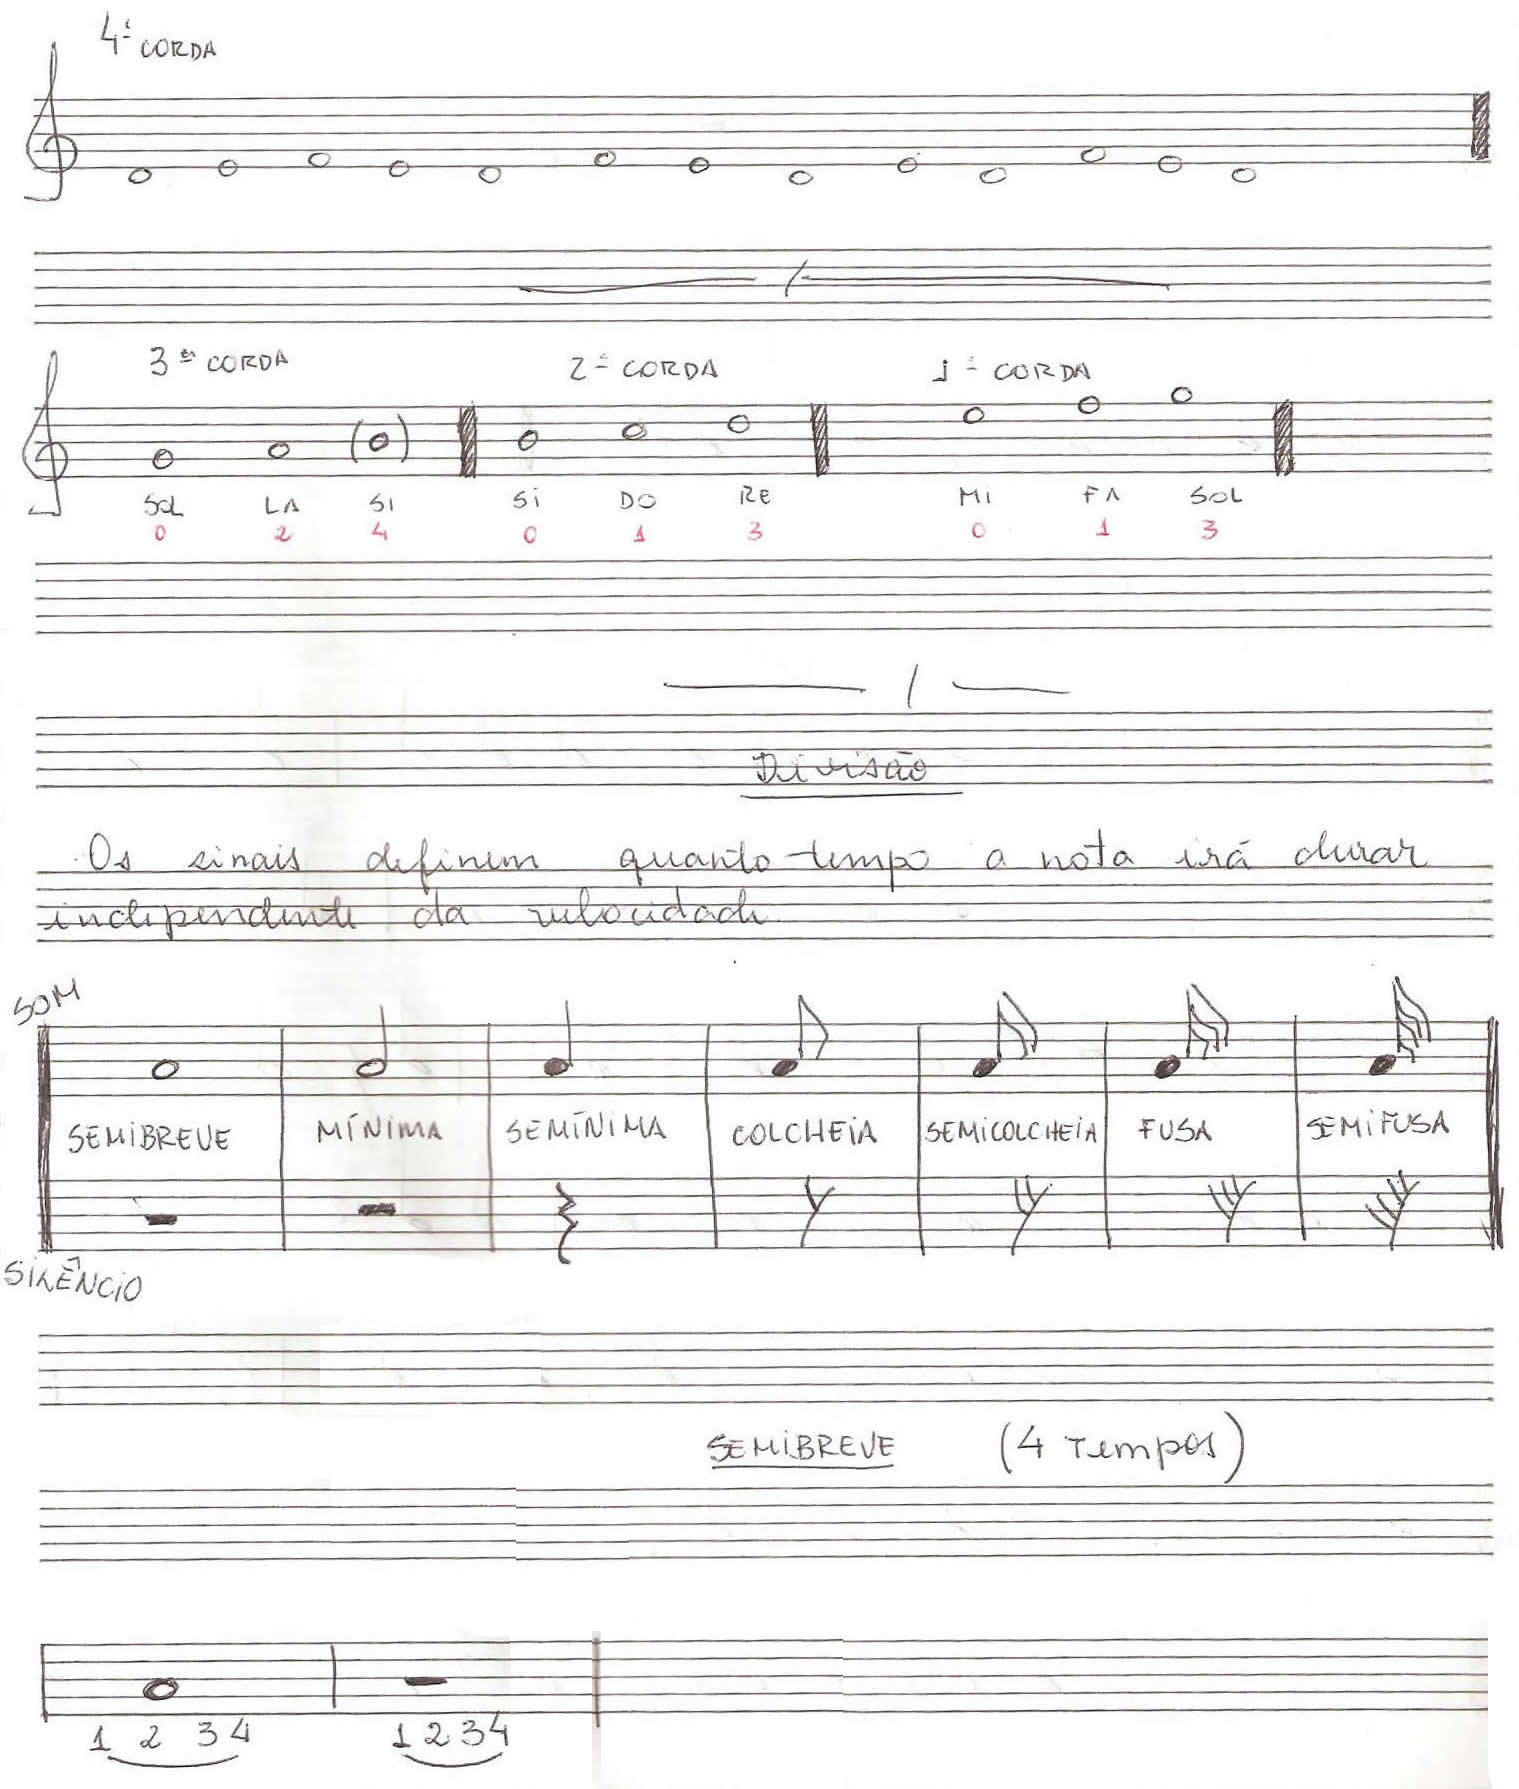 4ª CORDA
3ª CORDA 2ª CORDA 1ª CORDA
SOL LA SI SI DO RE MI FA SOL
0 2 4 0 1 3 0 1 3
Divisão
Os sinais definem quanto tempo a nota irá durar
independente da velocidade.
SOM
SEMIBREVE MÍNIMA SEMÍNIMA COLCHEIA SEMICOLCHEIA FUSA SEMIFUSA
SILÊNCIO
SEMIBREVE (4 Tempos)
1 2 3 4 1 2 3 4